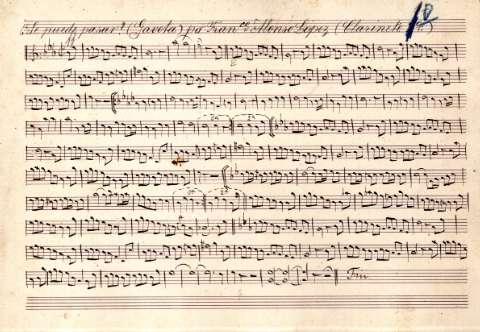 ¿Se puede pasar? (Gavota) por Fran.co Alonso López (Clarinete 1º)
1ª 2ª
1ª 2ª
Fin